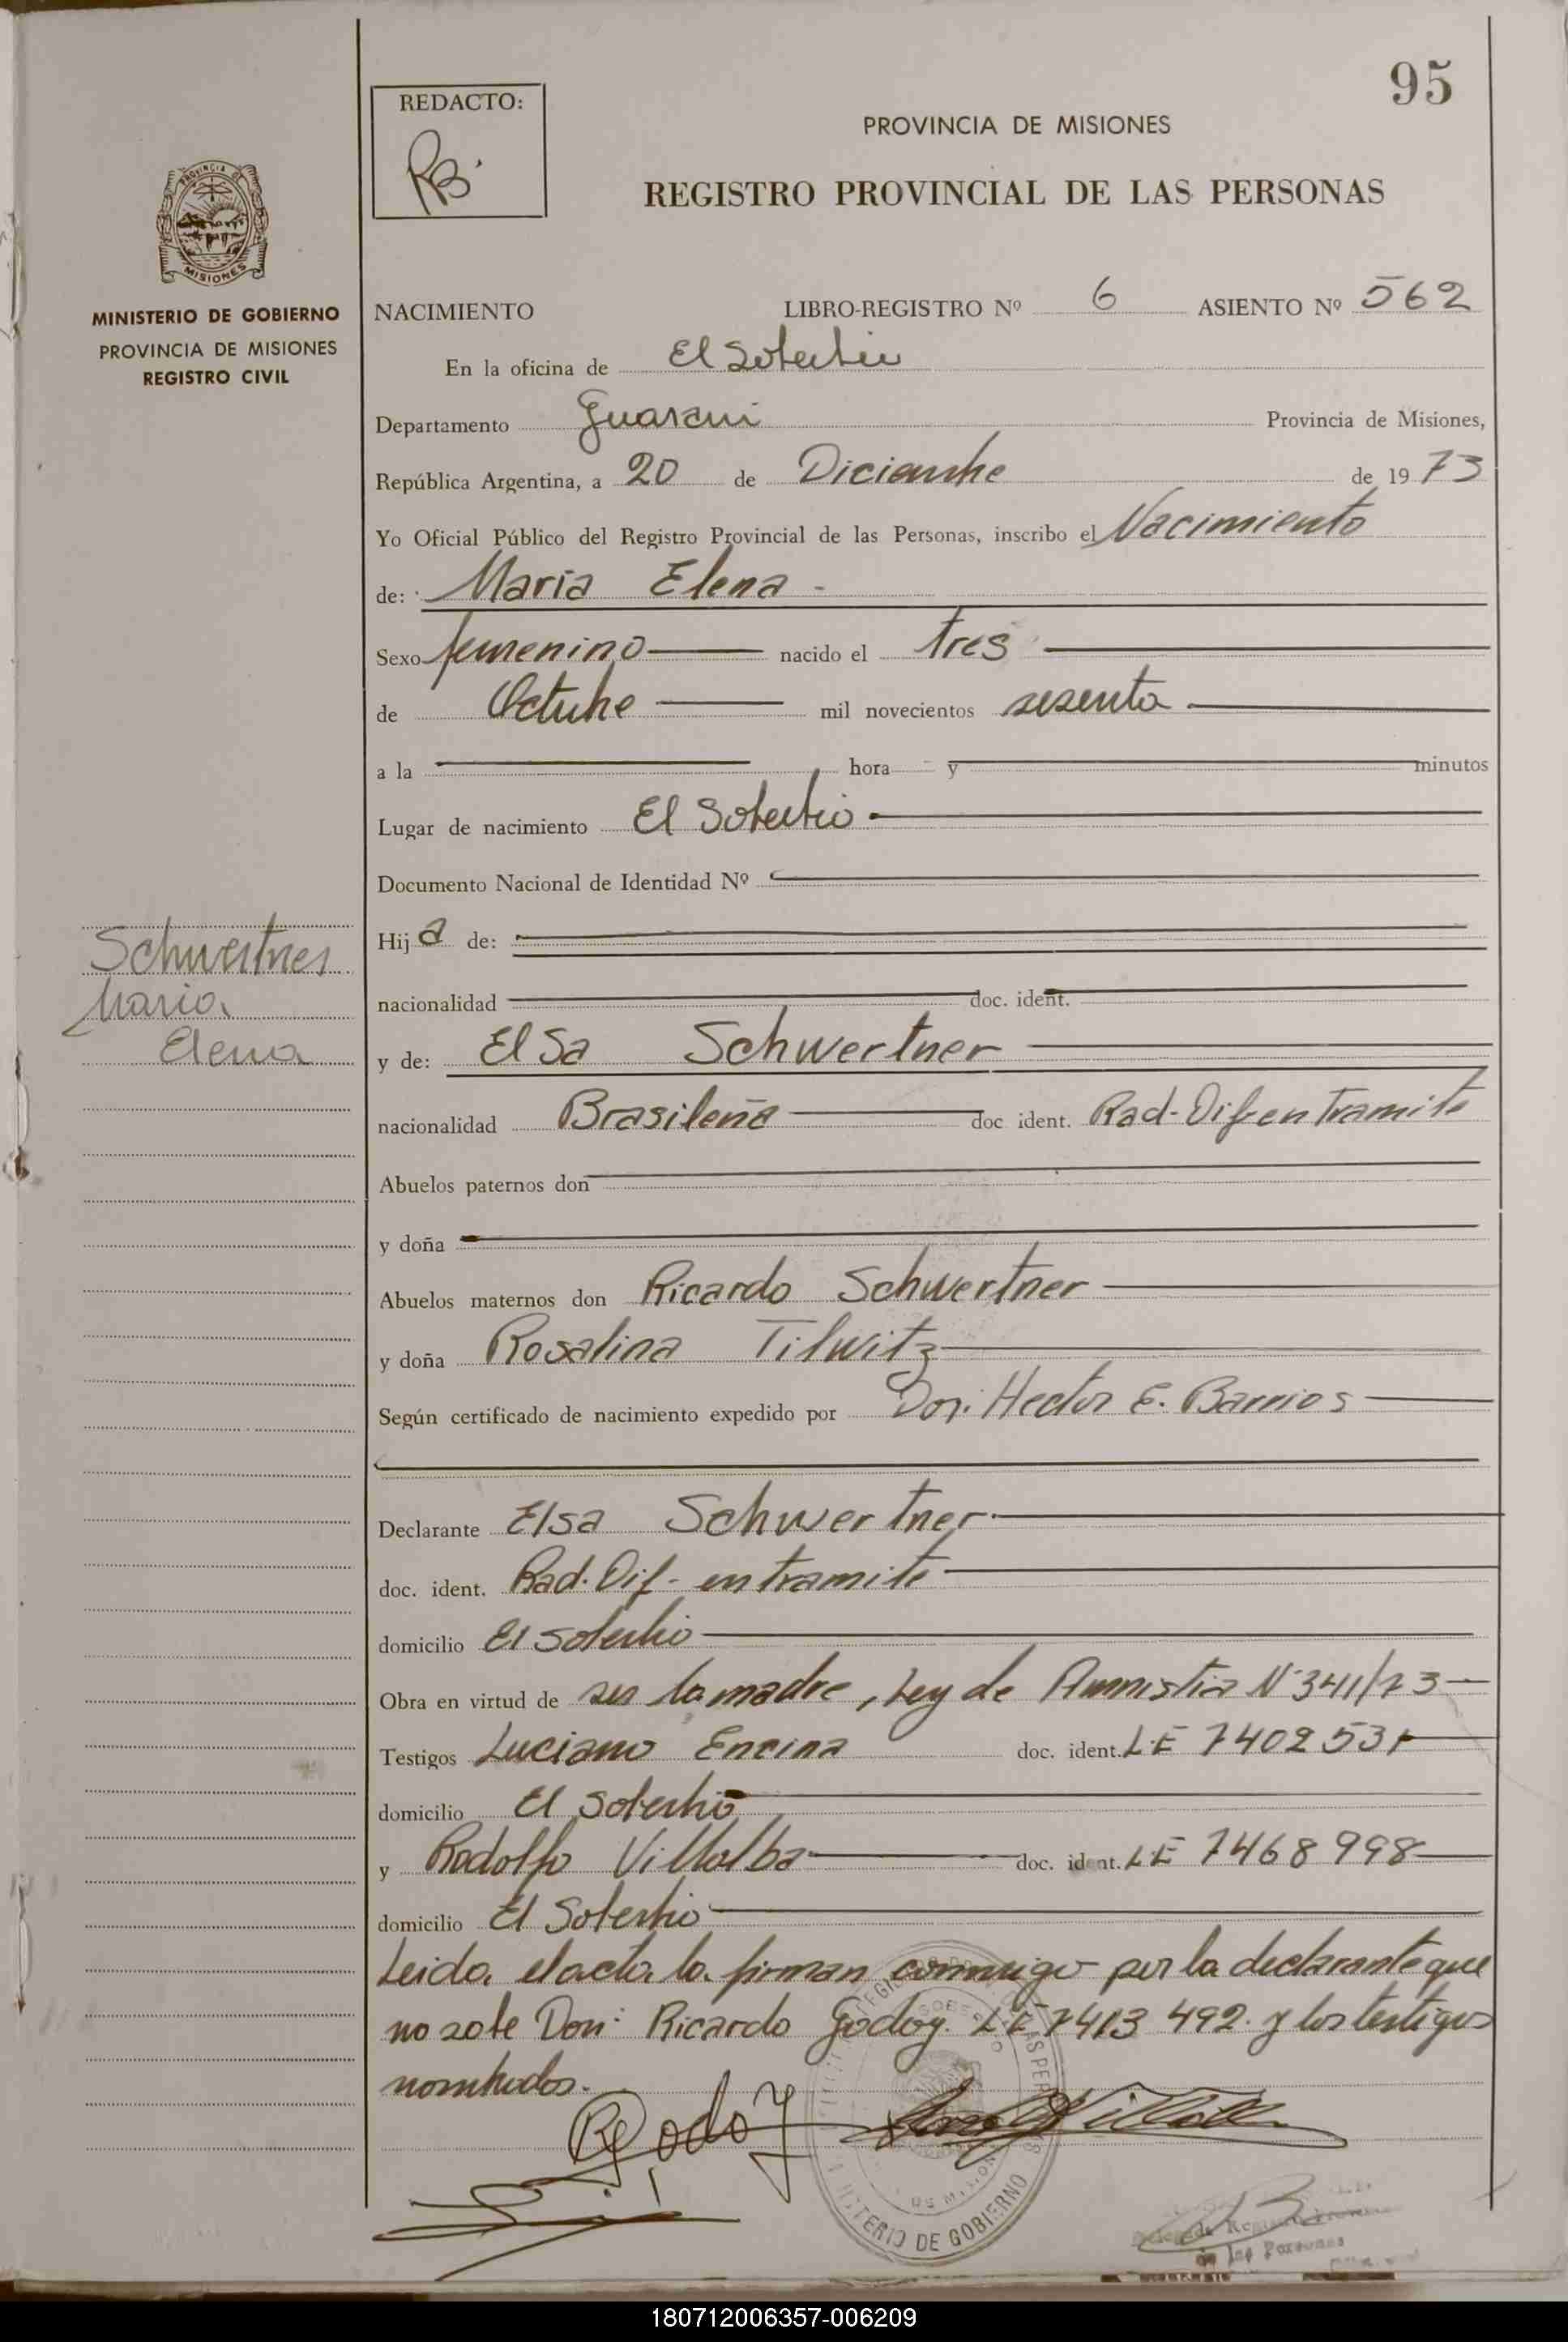 95
REDACTO:
RB.
PROVINCIA DE MISIONES
REGISTRO PROVINCIAL DE LAS PERSONAS
PROVINCIA DE
MISIONES
MINISTERIO DE GOBIERNO
PROVINCIA DE MISIONES
REGISTRO CIVIL
NACIMIENTO LIBRO-REGISTRO Nº 6 ASIENTO Nº 562
En la oficina de El Soberbio
Departamento Guarani Provincia de Misiones,
República Argentina, a 20 de Diciembre de 1973
Yo Oficial Público del Registro Provincial de las Personas, inscribo el Nacimiento
de: Maria Elena -
Sexo femenino nacido el tres
de Octubre mil novecientos sesenta
a la hora y minutos
Lugar de nacimiento El Soberbio
Documento Nacional de Identidad Nº
Hija de:
Schwertner
Maria
Elena
nacionalidad doc. ident.
y de: Elsa Schwertner
nacionalidad Brasileña doc ident. Rad-Dif en tramite
Abuelos paternos don
y doña
Abuelos maternos don Ricardo Schwertner
y doña Rosalina Tilwitz
Según certificado de nacimiento expedido por Don: Hector E. Barrios
Declarante Elsa Schwertner
doc. ident. Rad. Dif- en tramite
domicilio El Soberbio
Obra en virtud de ser la madre, Ley de Amnistia Nº 341/73
Testigos Luciano Encina doc. ident. L.E 7402531
domicilio El Soberbio
y Rodolfo Villalba doc. ident. LE 7468998
domicilio El Soberbio
Leida el acta la firman conmigo por la declarante que
no sabe Don: Ricardo Godoy. LE 7413492. y los testigos
nombrados.
RGodoy
MINISTERIO DE GOBIERNO
Delegado Registro Provincial
de las Personas
180712006357-006209